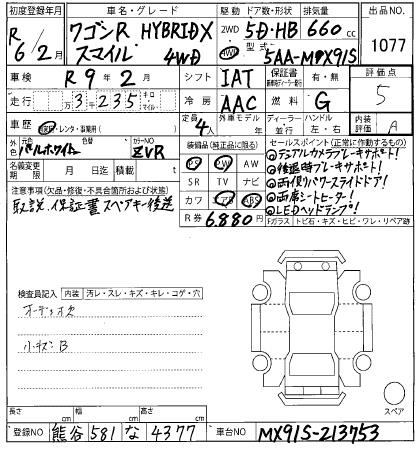 初度登録年月 車名・グレード 駆動 ドア数・形状 排気量 出品NO.
R 6/2月 ワゴンR HYBRIDX スマイル 4WD 2WD 4WD 5D・HB 660cc 1077
型式 5AA-MX91S
車検 R 9年 2月 シフト IAT 保証書 有・無 評価点 5
走行 万 3千 235 キロ マイル 冷房 AAC 燃料 G
車歴 自家用・レンタ・事業用( ) 定員 4人 外車モデル 年 ディーラー 並行 ハンドル 左・右 内装評価 A
外色 元色 パールホワイト 色替 カラーNO ZVR
装備品(純正品に限る) セールスポイント(正常に動作するもの)
名義変更期限 月 日迄 積載 t
PS PW AW
SR TV ナビ
カワ エアB ABS
◎デュアルカメラブレーキサポート!
◎後退時ブレーキサポート!
◎両側パワースライドドア!
◎両席シートヒーター!
◎LEDヘッドランプ!
注意事項(欠品・修復・不具合箇所および状態)
取説、保証書、スペアキー後送
R券 6,880円 Fガラス トビ石・キズ・ヒビ・ワレ・リペア跡
検査員記入 内装 汚レ・スレ・キズ・キレ・コゲ・穴
オーディオ欠
小キズB
スペア
長さ cm 幅 cm 高さ cm
登録NO 熊谷 581 な 4377 車台NO MX91S-213753